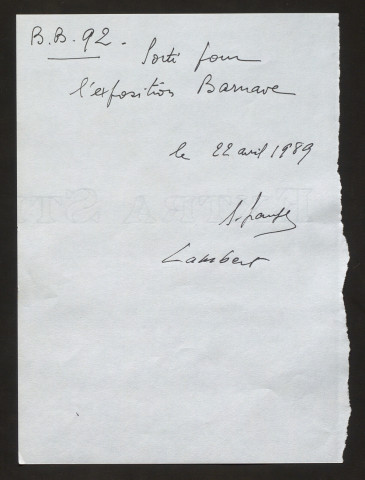 B.B. 92 - Sorti pour
l'exposition Barnave
le 22 avril 1989
Lambert